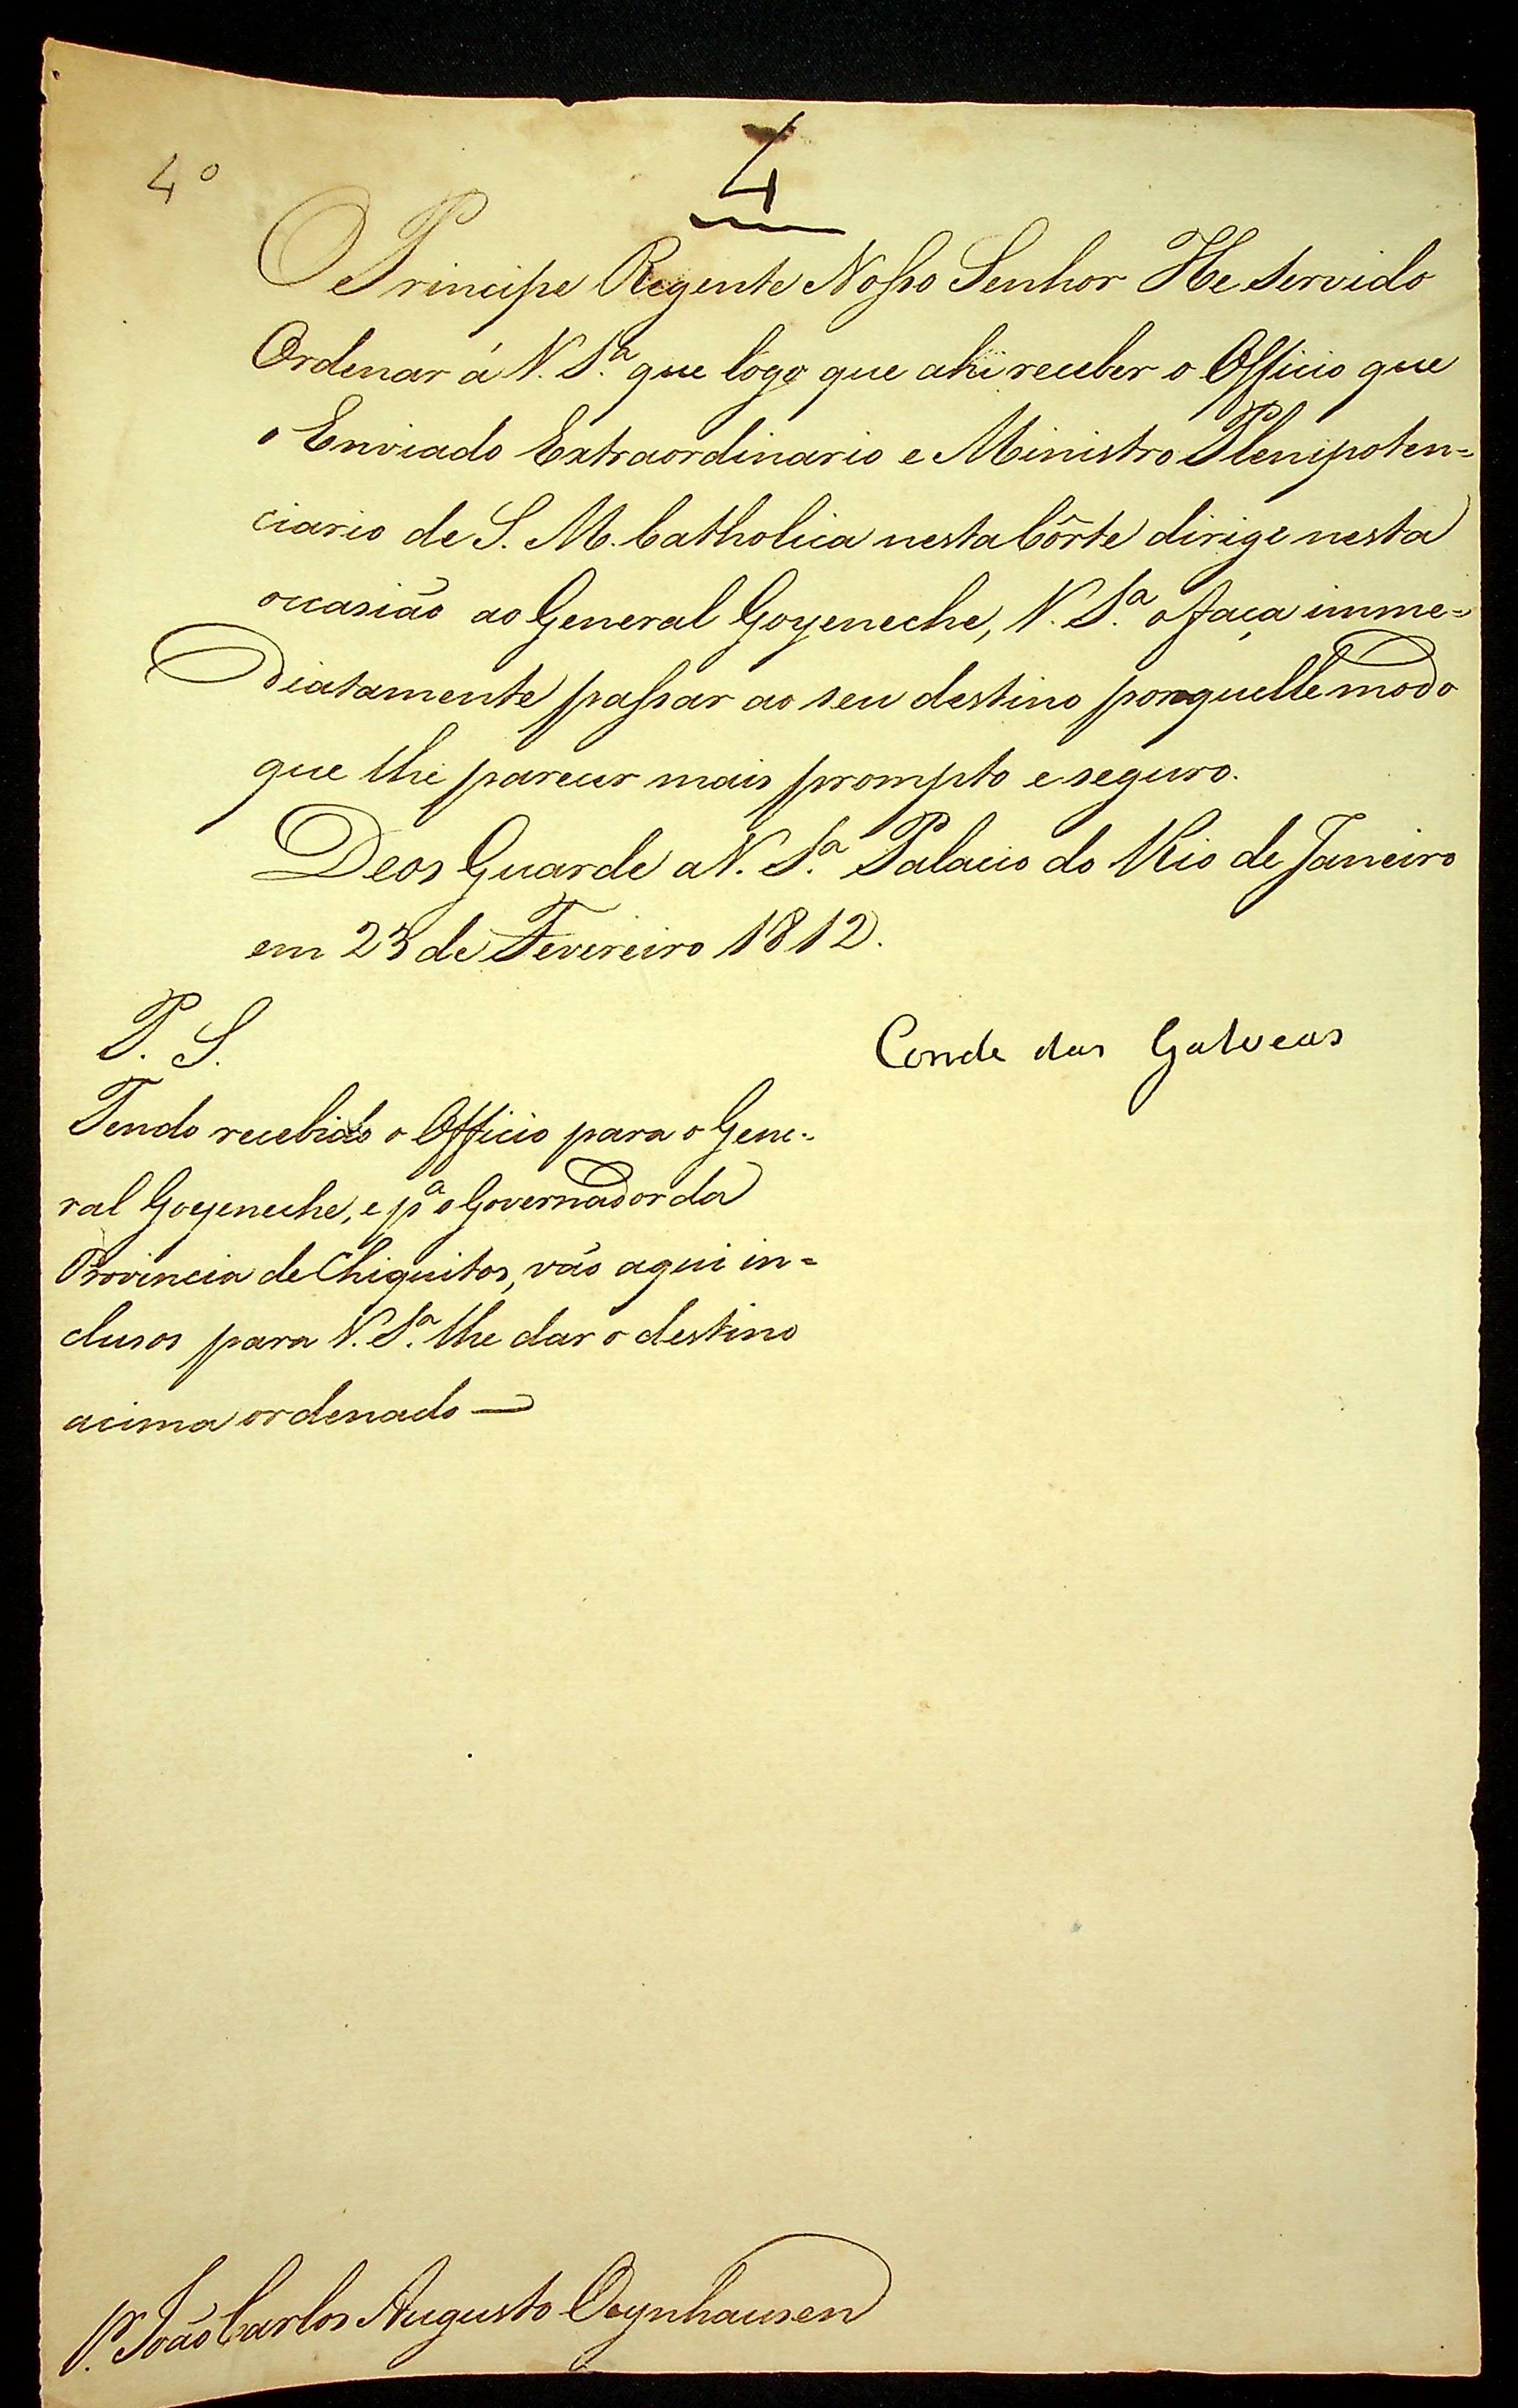 4
4º
O Principe Regente Nosso Senhor He Servido
Ordenar á V. S.ª que logo que ahi receber o Officio que
o Enviado Extraordinario e Ministro Plenipoten=
ciario de S. M. Catholica nesta Côrte dirige nesta
occasião ao General Goyeneche, V. S.ª o faça imme=
diatamente passar ao seu destino por aquelle modo
que lhe parecer mais prompto e seguro.
Deos Guarde a V. S.ª Palacio do Rio de Janeiro
em 23 de Fevereiro 1812.
Conde das Galveas
P. S.
Tendo recebido o Officio para o Gene-
ral Goyeneche, e pª o Governador da
Provincia de Chiquitos, vão aqui in=
clusos para V. S.ª lhe dar o destino
acima ordenado —
João Carlos Augusto Oeynhausen